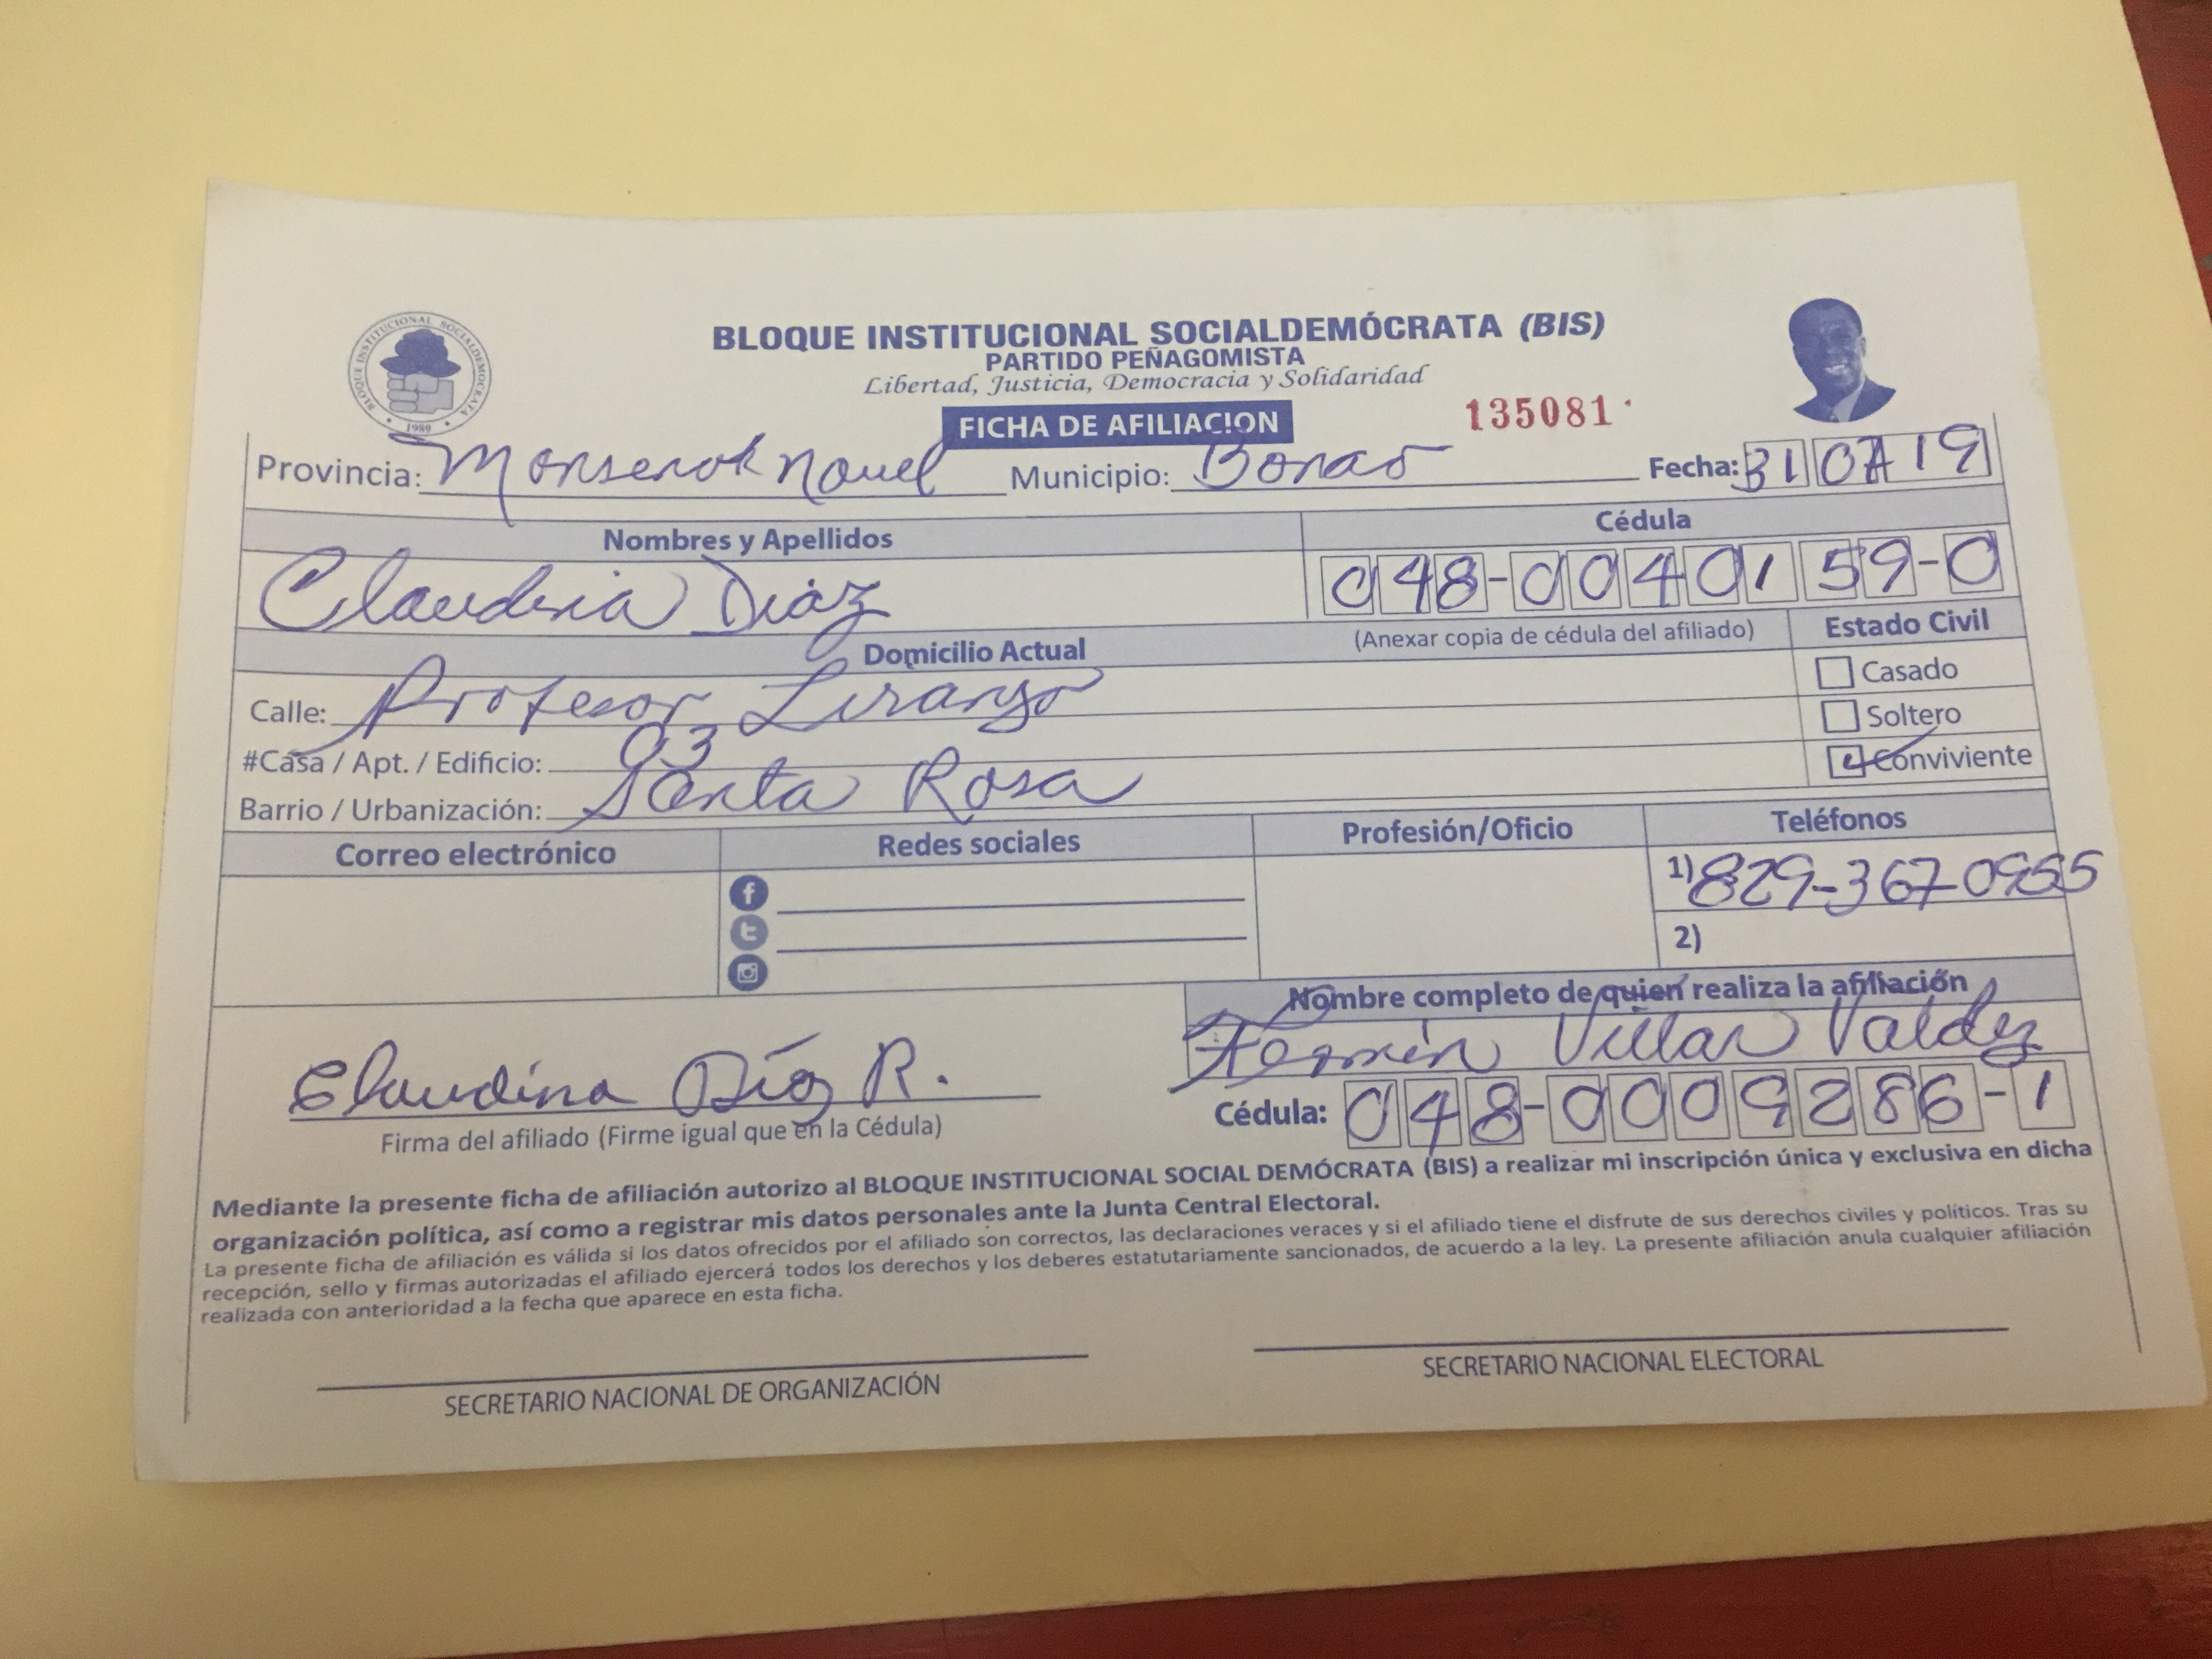 BLOQUE INSTITUCIONAL SOCIALDEMÓCRATA
1989
BLOQUE INSTITUCIONAL SOCIALDEMÓCRATA (BIS)
PARTIDO PEÑAGOMISTA
Libertad, Justicia, Democracia y Solidaridad
FICHA DE AFILIACION 135081
Provincia: Nouel Municipio: Bonao Fecha: 31 07 19
Nombres y Apellidos Cédula
Claudina Díaz 048-0040159-0
Domicilio Actual (Anexar copia de cédula del afiliado) Estado Civil
Casado
Calle: Profesor Liranzo
Soltero
#Casa / Apt. / Edificio: 03
Conviviente
Barrio / Urbanización: Santa Rosa
Correo electrónico Redes sociales Profesión/Oficio Teléfonos
1) 829-367-0955
2)
Nombre completo de quien realiza la afiliación
Villar Valdez
Claudina Díaz R.
Cédula: 048-0009286-1
Firma del afiliado (Firme igual que en la Cédula)
Mediante la presente ficha de afiliación autorizo al BLOQUE INSTITUCIONAL SOCIAL DEMÓCRATA (BIS) a realizar mi inscripción única y exclusiva en dicha
organización política, así como a registrar mis datos personales ante la Junta Central Electoral.
La presente ficha de afiliación es válida si los datos ofrecidos por el afiliado son correctos, las declaraciones veraces y si el afiliado tiene el disfrute de sus derechos civiles y políticos. Tras su
recepción, sello y firmas autorizadas el afiliado ejercerá todos los derechos y los deberes estatutariamente sancionados, de acuerdo a la ley. La presente afiliación anula cualquier afiliación
realizada con anterioridad a la fecha que aparece en esta ficha.
SECRETARIO NACIONAL DE ORGANIZACIÓN SECRETARIO NACIONAL ELECTORAL